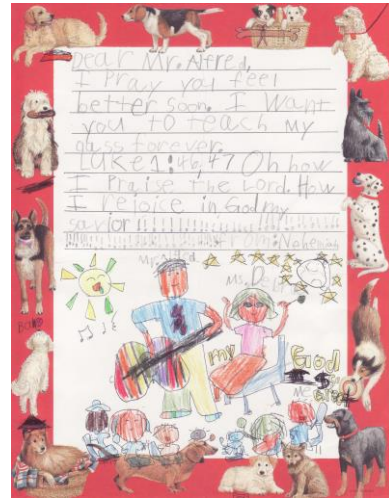 Dear Mr. Alfred,
I Pray you feel
better soon. I Want
you to teach my
class forever.
LUKE 1:46,47 Oh how
I Praise The Lord. How
I rejoice in God my
savior !!!!!!!!!!!!!!!!!!!!!!!!!!
From: Nehemiah
Mr. Alfred
Ms. De
my God
is
Me